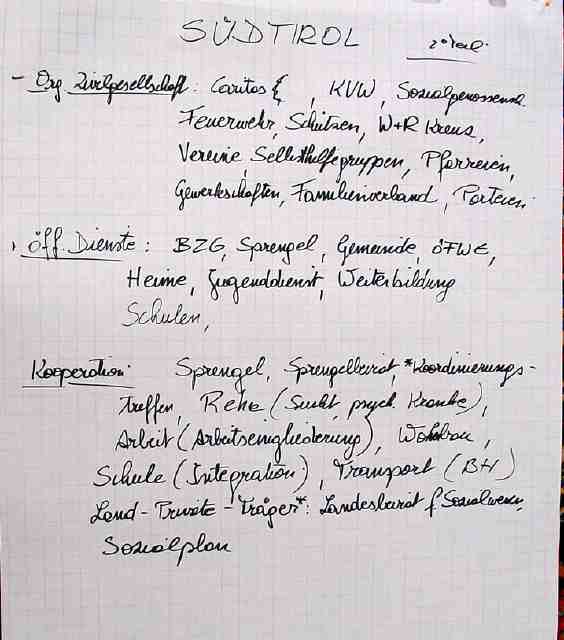 SÜDTIROL
- Org Zivilgesellschaft: Caritas {, KVW, Sozialgenossensch.
Feuerwehr, Schützen, W+R Kreuz,
Vereine, Selbsthilfegruppen, Pfarreien,
Gewerkschaften, Familienverband, Parteien.
öff. Dienste: BZG, Sprengel, Gemeinde, ÖFWE,
Heime, Jugenddienst, Weiterbildung
Schulen,
Kooperation: Sprengel, Sprengelbeirat, *Koordinierungs-
treffen, Reha (Sucht, psych. Kranke),
Arbeit (Arbeitseingliederung), Wohnbau,
Schule (Integration), Transport (BH)
Land-Private-Träger*: Landesbeirat f Sozialwesen,
Sozialplan